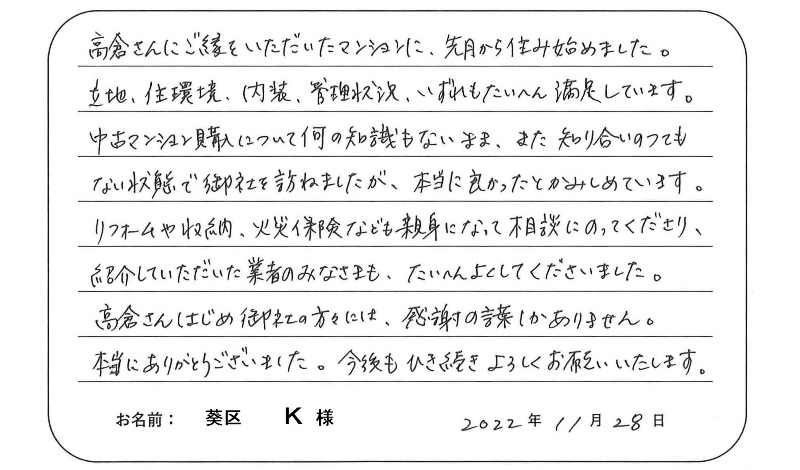 高倉さんにご縁をいただいたマンションに、先月から住み始めました。
立地、住環境、内装、管理状況、いずれもたいへん満足しています。
中古マンション購入について何の知識もないまま、また知り合いのつても
ない状態で御社を訪ねましたが、本当に良かったとかみしめています。
リフォームや収納、火災保険なども親身になって相談にのってくださり、
紹介していただいた業者のみなさまも、たいへんよくしてくださいました。
高倉さんはじめ御社の方々には、感謝の言葉しかありません。
本当にありがとうございました。今後もひき続きよろしくお願いいたします。
お名前： 葵区 K 様 2022年 11月 28日